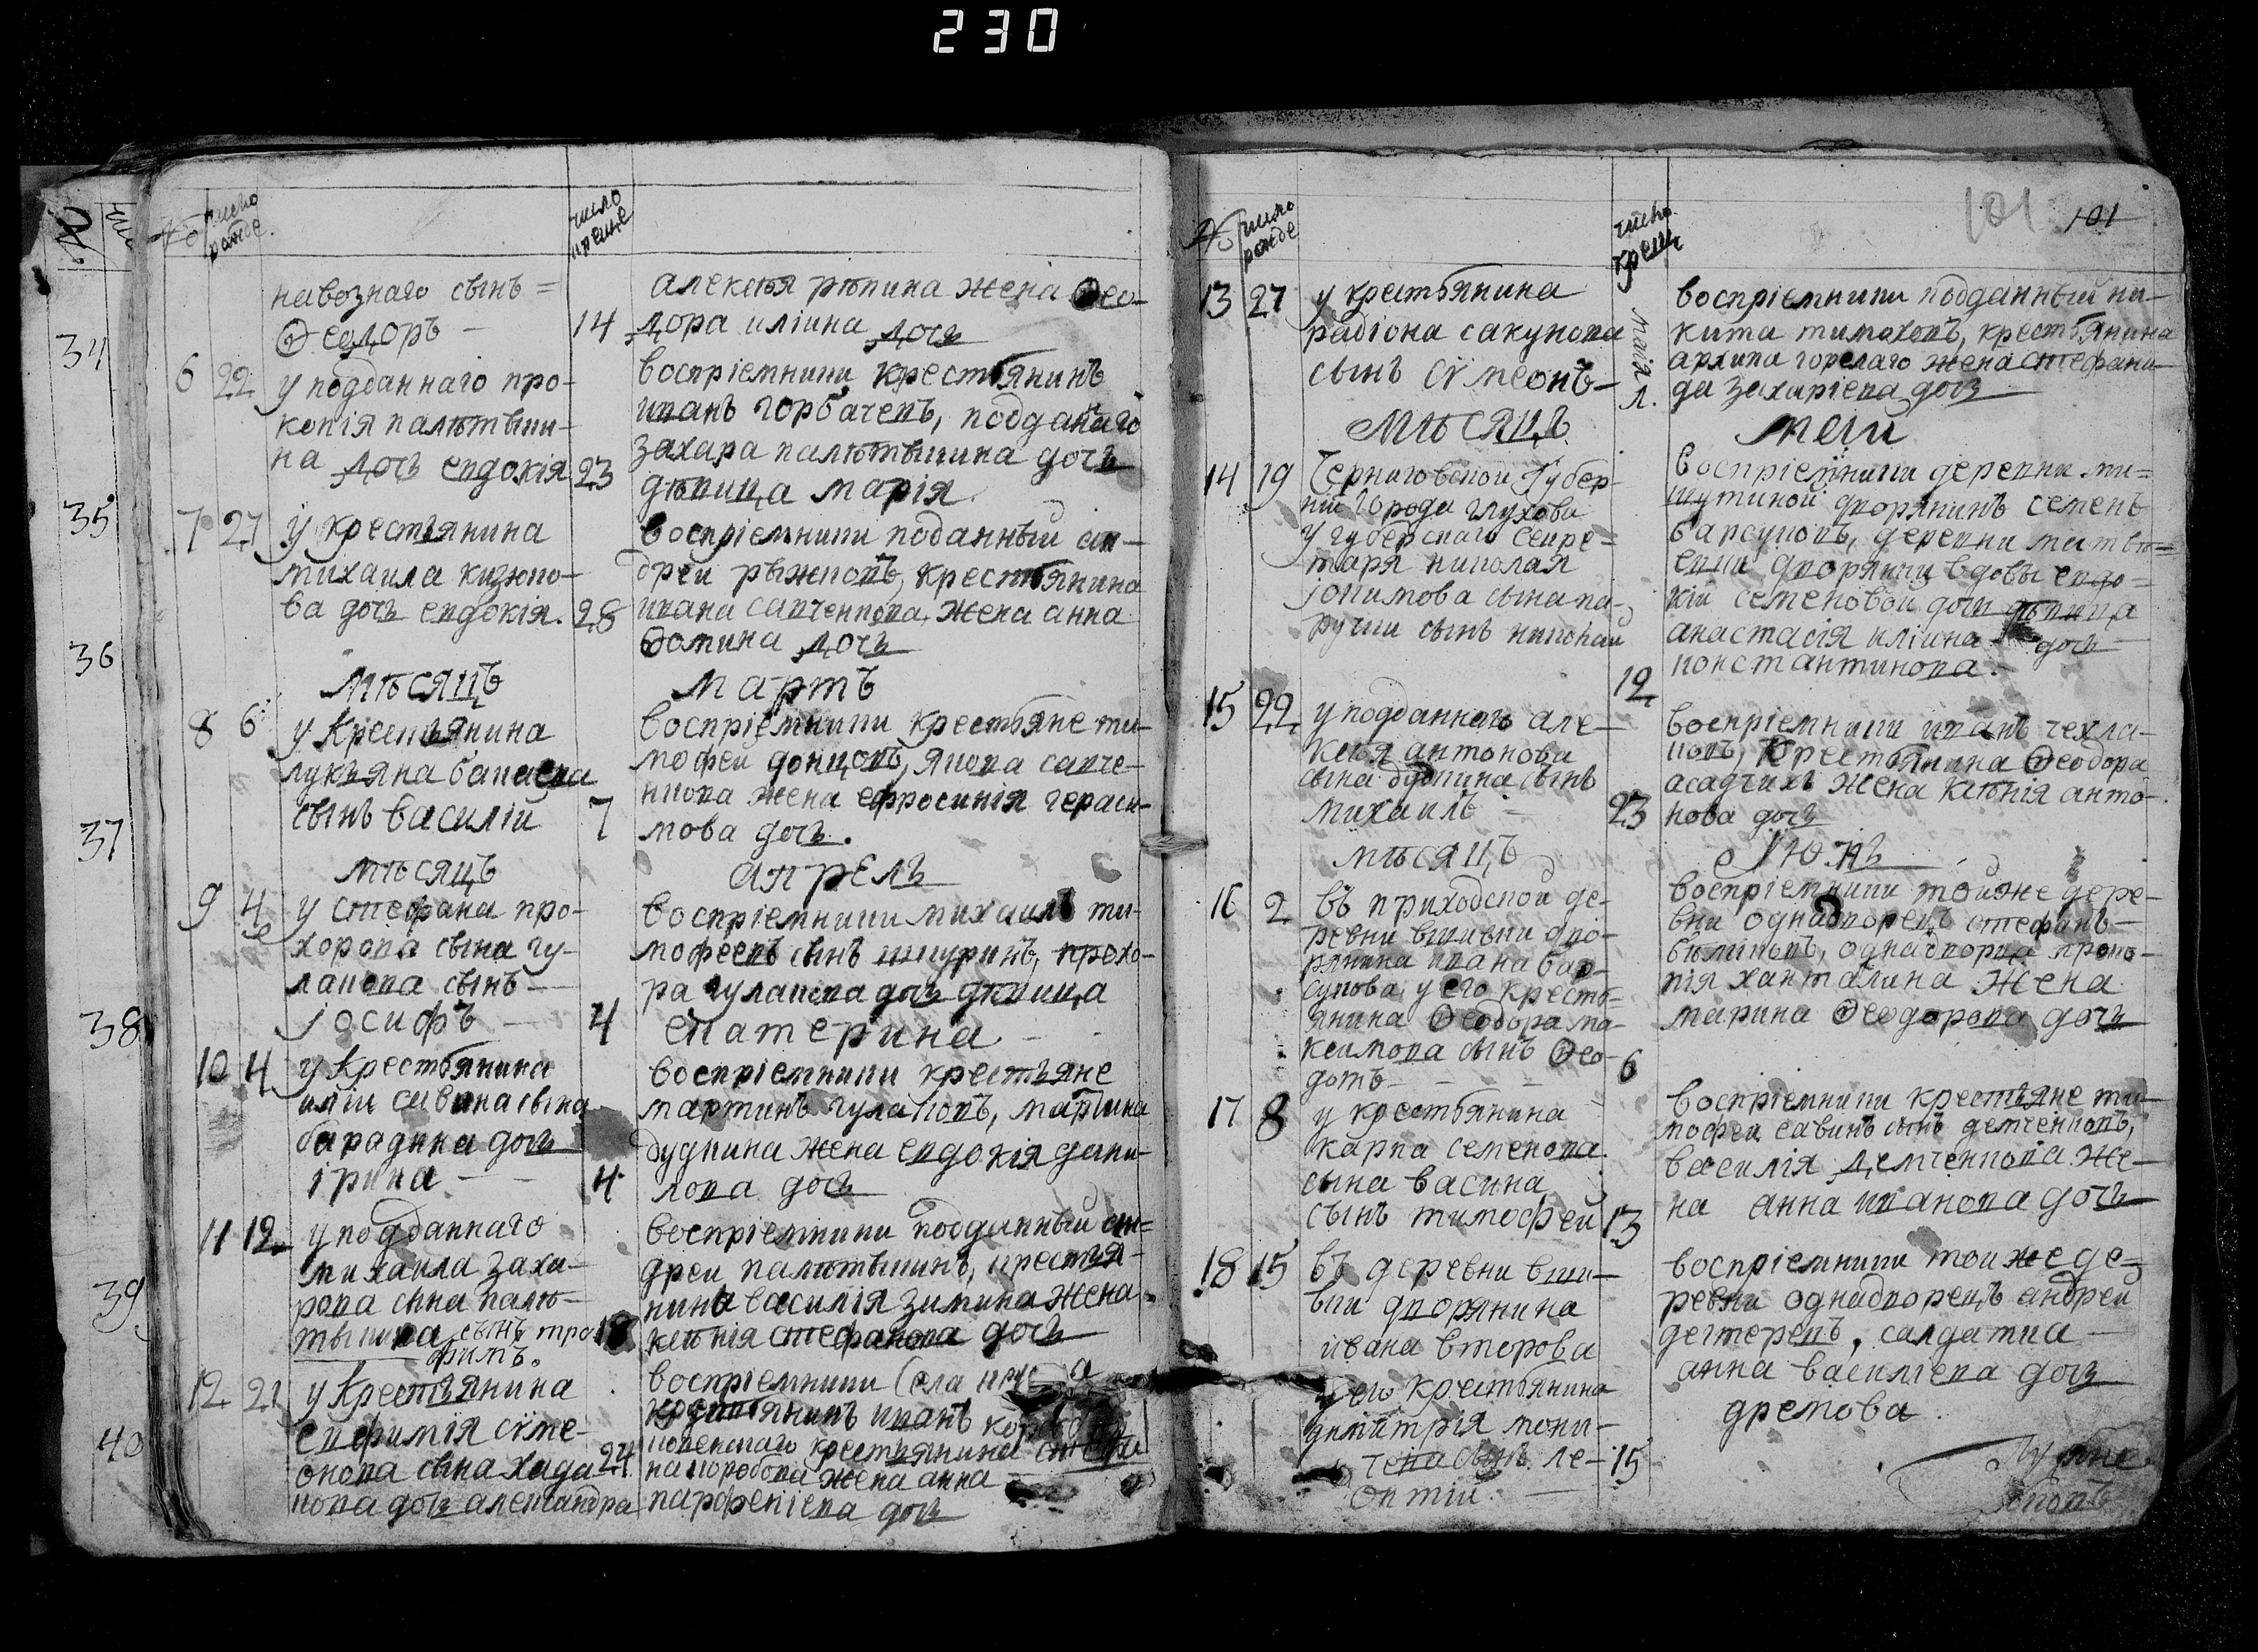 230
№
число рожде.
число креще
навознаго сынъ =
Ѳеодоръ — 14
6 22 у подданнаго про-
копія палютьши-
на дочь евдокія 23
7 27 у крестьянина
михаила кизюпо-
ва дочь евдокія. 28
мѣсяцъ
8 6 у крестьянина
лукьяна бапаева
сынъ василій 7
мѣсяцъ
9 4 у стефана про-
хорова сына гу-
лапова сынъ —
іосифъ — 4
10 4 у крестьянина
иліи савина сына
барадина дочь
ірина — — 4
11 12 у подданнаго
михаила заха-
рова сына палю-
тьшина сынъ тро-
фимъ.
12 21 у крестьянина
евфимія сѵме-
онова сына хада- 24
кова дочь александра
алексѣя рѣпина жена Ѳео-
дора иліина дочь
воспріемники крестьянинъ
иванъ горбачевъ, подданаго
захара палютьшина дочь
дѣвица марія
воспріемники поданный ан-
дреи рыжковъ, крестьянина
ивана савченкова жена анна
Ѳомина дочь
мартъ
воспріемники крестьяне ти-
мофеи донцовъ, якова савче-
нкова жена ефросинія гераси-
мова дочь.
апрель
воспріемники михаилъ ти-
мофеевъ сынъ шшуринъ, прохо-
ра гулапова дочь дѣвица
екатерина —
воспріемники крестьяне
мартинъ гулаповъ, мартина
дудкина жена евдокія дани-
лова дочь
воспріемники подданный ан-
дреи палютьшинъ, крестья-
нина василія зимина жена
ксѣнія стефанова дочь
воспріемники села
крестьянинъ иванъ
крестьянина
на коробова жена анна
парфеніева дочь
34
35
36
37
38
39
40
№
число рожде
число крещ
101 101
13 27 у крестьянина
радіона сакунова
сынъ сѵмеонъ —
маія
мѣсяцъ
14 19 Черниговской Губер-
ніи города глухова
у губерскаго секре-
таря николая
іокимова сына па-
ручки сынъ николай
19
15 22 у подданнаго але-
ксѣя антонова
сына дудкина сынъ
михаилъ — 23
мѣсяцъ
16 2 въ приходской де-
ревни вшивки дво-
рянина ивана бар-
сукова у его кресть-
янина Ѳеодора ма-
ксимова сынъ Ѳео-
дотъ — — 6
17 8 у крестьянина
карпа семенова
сына васина
сынъ тимофей 13
18 15 въ деревни вши-
вки дворянина
ивана второва
у его крестьянина
димитрія мони-
чева сынъ ле- 15
онтій. —
воспріемники подданный ни-
кита тимоховъ, крестьянина
архипа горелаго жена стефани-
да захаріева дочь
меій
воспріемники деревни ми-
шутиной дворянинъ семенъ
барсуковъ, деревни матвѣ-
евки дворянки вдовы евдо-
кіи семеновой дочь дѣвица
анастасія иліина дочь
константинова.
воспріемники иванъ чехла-
ковъ, крестьянина Ѳеодора
асадчихъ жена ксѣнія анто-
нова дочь
Июнь
воспріемники тойже дере-
вни однадворецъ стефанъ
бѣликовъ, однадворца проко-
пія ханталина жена
марина Ѳеодорова дочь
воспріемники крестьяне ти-
мофеи савинъ сынъ демченковъ,
василія демченкова же-
на анна иванова дочь
воспріемники той же де-
ревни однадворецъ андрей
дегтеревъ, салдатка
анна василіева дочь
дремова